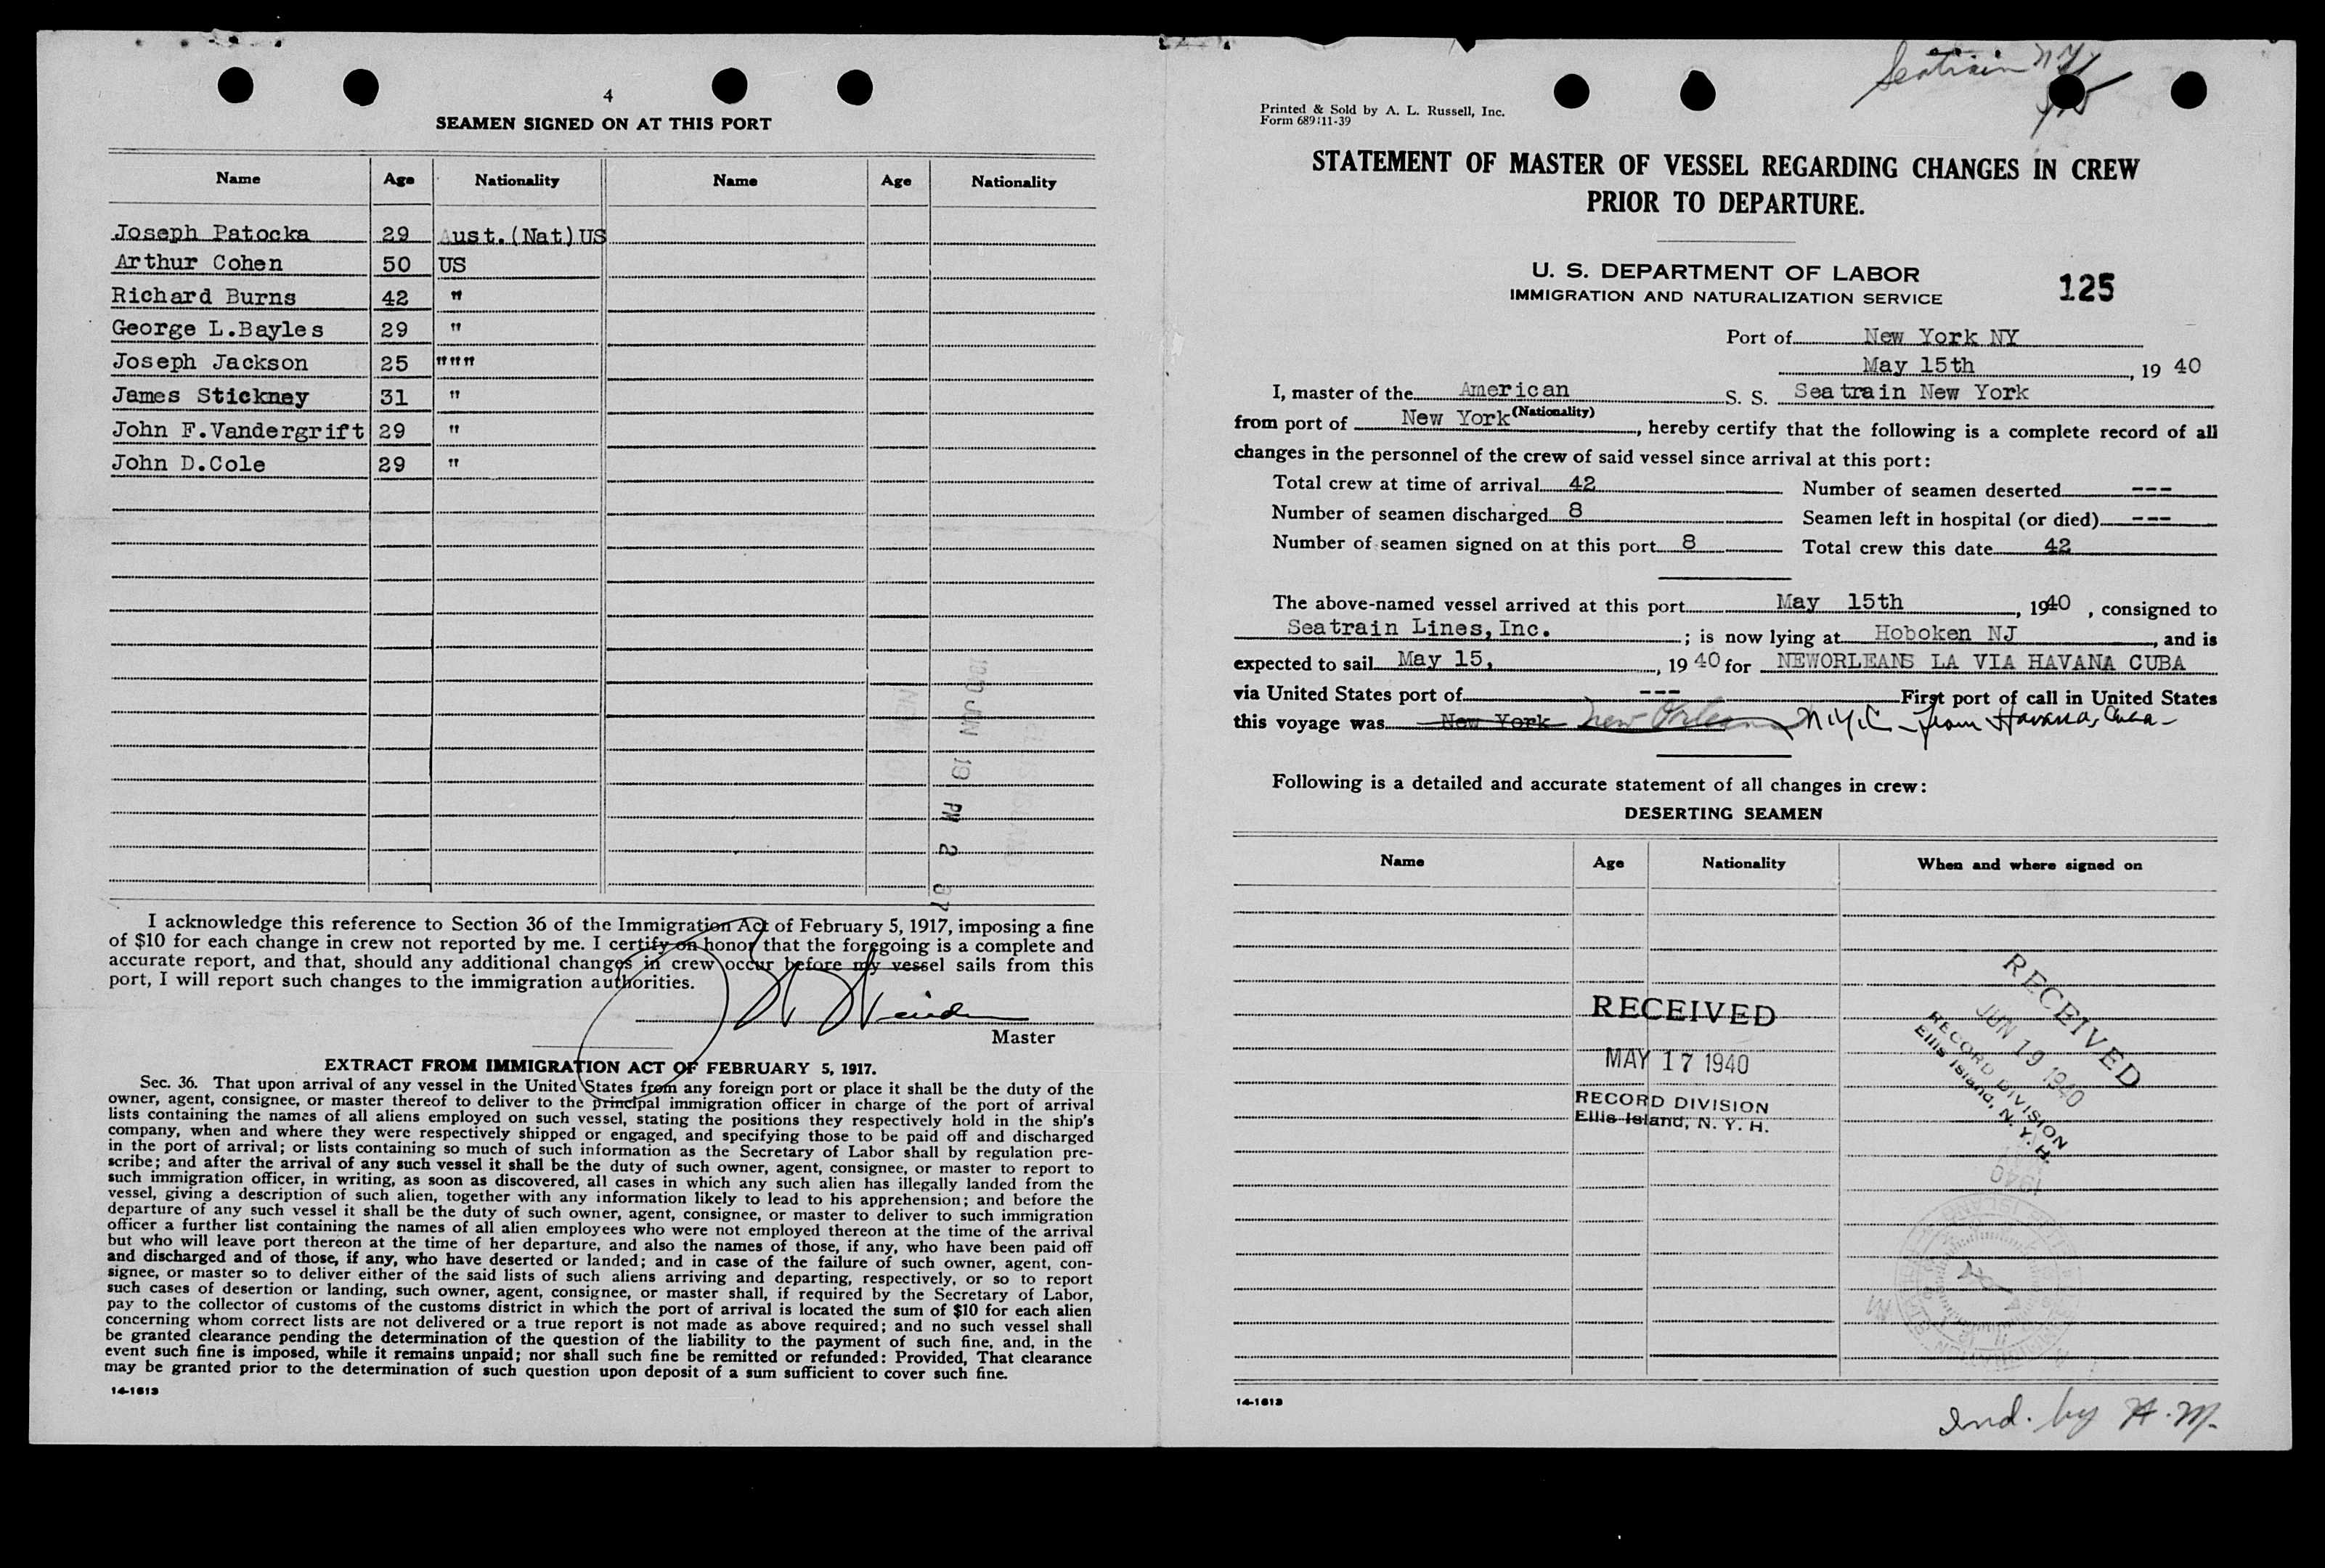 4
SEAMEN SIGNED ON AT THIS PORT
Name Age Nationality Name Age Nationality
Joseph Patocka 29 Aust.(Nat)US
Arthur Cohen 50 US
Richard Burns 42 "
George L.Bayles 29 "
Joseph Jackson 25 """
James Stickney 31 "
John F.Vandergrift 29 "
John D.Cole 29 "
I acknowledge this reference to Section 36 of the Immigration Act of February 5, 1917, imposing a fine
of $10 for each change in crew not reported by me. I certify on honor that the foregoing is a complete and
accurate report, and that, should any additional changes in crew occur before my vessel sails from this
port, I will report such changes to the immigration authorities.
Master
EXTRACT FROM IMMIGRATION ACT OF FEBRUARY 5, 1917.
Sec. 36. That upon arrival of any vessel in the United States from any foreign port or place it shall be the duty of the
owner, agent, consignee, or master thereof to deliver to the principal immigration officer in charge of the port of arrival
lists containing the names of all aliens employed on such vessel, stating the positions they respectively hold in the ship's
company, when and where they were respectively shipped or engaged, and specifying those to be paid off and discharged
in the port of arrival; or lists containing so much of such information as the Secretary of Labor shall by regulation pre-
scribe; and after the arrival of any such vessel it shall be the duty of such owner, agent, consignee, or master to report to
such immigration officer, in writing, as soon as discovered, all cases in which any such alien has illegally landed from the
vessel, giving a description of such alien, together with any information likely to lead to his apprehension; and before the
departure of any such vessel it shall be the duty of such owner, agent, consignee, or master to deliver to such immigration
officer a further list containing the names of all alien employees who were not employed thereon at the time of the arrival
but who will leave port thereon at the time of her departure, and also the names of those, if any, who have been paid off
and discharged and of those, if any, who have deserted or landed; and in case of the failure of such owner, agent, con-
signee, or master so to deliver either of the said lists of such aliens arriving and departing, respectively, or so to report
such cases of desertion or landing, such owner, agent, consignee, or master shall, if required by the Secretary of Labor,
pay to the collector of customs of the customs district in which the port of arrival is located the sum of $10 for each alien
concerning whom correct lists are not delivered or a true report is not made as above required; and no such vessel shall
be granted clearance pending the determination of the question of the liability to the payment of such fine, and, in the
event such fine is imposed, while it remains unpaid; nor shall such fine be remitted or refunded: Provided, That clearance
may be granted prior to the determination of such question upon deposit of a sum sufficient to cover such fine.
14-1613
Seatrain N.Y.
Printed & Sold by A. L. Russell, Inc.
Form 689:11-39
STATEMENT OF MASTER OF VESSEL REGARDING CHANGES IN CREW
PRIOR TO DEPARTURE.
U. S. DEPARTMENT OF LABOR
IMMIGRATION AND NATURALIZATION SERVICE
125
Port of New York NY
May 15th, 19 40
I, master of the American S. S. Seatrain New York
(Nationality)
from port of New York, hereby certify that the following is a complete record of all
changes in the personnel of the crew of said vessel since arrival at this port:
Total crew at time of arrival 42 Number of seamen deserted ---
Number of seamen discharged 8 Seamen left in hospital (or died) ---
Number of seamen signed on at this port 8 Total crew this date 42
The above-named vessel arrived at this port May 15th, 1940, consigned to
Seatrain Lines,Inc.; is now lying at Hoboken NJ, and is
expected to sail May 15, 19 40 for NEWORLEANS LA VIA HAVANA CUBA
via United States port of --- First port of call in United States
this voyage was New York New Orleans N.Y.C - from Havana, Cuba -
Following is a detailed and accurate statement of all changes in crew:
DESERTING SEAMEN
Name Age Nationality When and where signed on
RECEIVED
MAY 17 1940
RECORD DIVISION
Ellis Island, N. Y. H.
RECEIVED
JUN 19 1940
RECORD DIVISION
Ellis Island, N. Y. H.
1940
14-1613
Ind. by H. M.